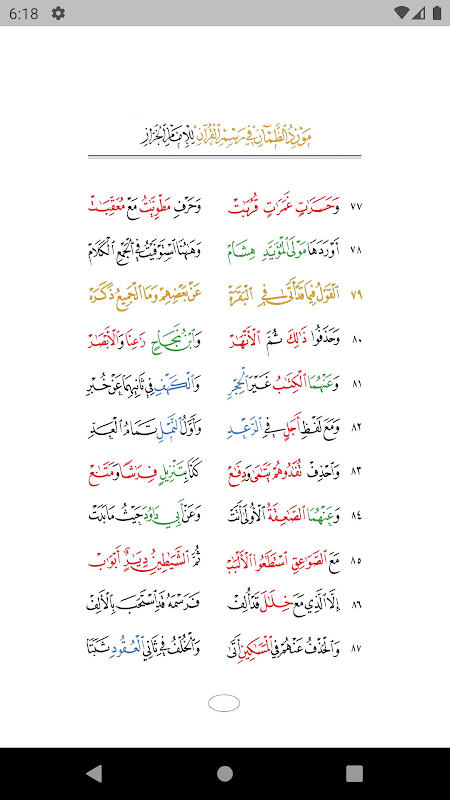 6:18
مَوْرِدُ الظَّمْآنِ فِي رَسْمِ الْقُرْآنِ لِلْإِمَامِ الْخَرَّازِ
٧٧ وَحَسَرَٰتٍ غَمَرَٰتِ قُرُبَٰتْ وَحَرْفِ مَطْوِيَّٰتُ مَعْ مُعَقِّبَٰتْ
٧٨ أَوْرَدَهَا مَوْلَى الْمُؤَيَّدِ هِشَامْ وَهَٰهُنَا اسْتَوْفَيْتُ فِي الْجَمْعِ الْكَلَامْ
٧٩ الْقَوْلُ فِيمَا قَدْ أَتَى فِي الْبَقَرَةْ عَنْ بَعْضِهِمْ وَمَا الْجَمِيعُ ذَكَرَهْ
٨٠ وَحَذَفُوا ذَٰلِكَ ثُمَّ الْأَنْهَٰرْ وَابْنُ نَجَاحٍ رَٰعِنَا وَالْأَبْصَٰرْ
٨١ وَعَنْهُمَا الْكِتَٰبُ غَيْرَ الْحِجْرِ وَالْكَهْفِ فِي ثَانِيهِمَا عَنْ خُبْرِ
٨٢ وَمَعَ لَفْظِ أَجَلٍ فِي الرَّعْدِ وَأَوَّلُ النَّمْلِ تَمَامُ الْعَدِّ
٨٣ وَاحْذِفْ تُفَٰدُوهُمْ يَتَٰمَى وَدِفَٰعْ كَذَا بِتَنْزِيلٍ فِرَٰشًا وَمَتَٰعْ
٨٤ وَعَنْهُمَا الصَّٰعِقَةُ الْأُولَى أَتَتْ وَعَنْ أَبِي دَاوُدَ حَيْثُ مَا بَدَتْ
٨٥ مَعَ الصَّوَٰعِقِ اسْتَطَٰعُوا الْأَلْبَٰبْ ثُمَّ الشَّيَٰطِينُ دِيَٰرٌ أَبْوَٰبْ
٨٦ إِلَّا الَّذِي مَعَ خِلَٰلَ قَدْ أُلِفْ فَرَسْمُهُ قَدِ اسْتُحِبَّ بِالْأَلِفْ
٨٧ وَالْحَذْفُ عَنْهُمْ فِي الْمَسَٰكِينِ أَتَى وَالْخُلْفُ فِي ثَانِي الْعُقُودِ ثَبَتَا